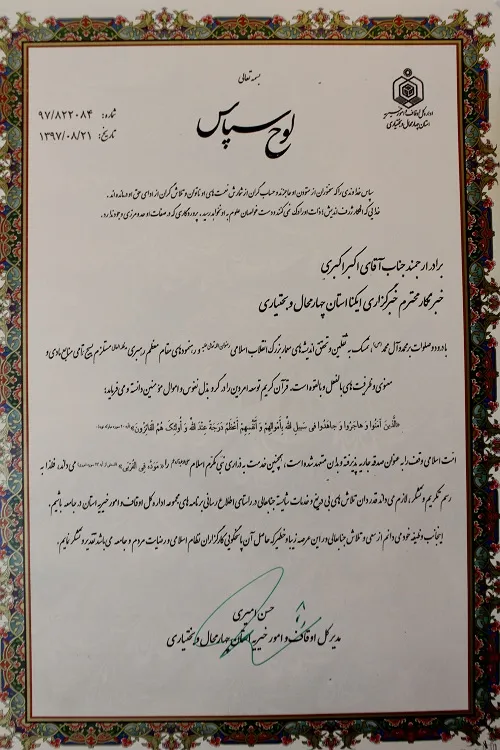 بسمه تعالی
اداره کل اوقاف و امور خیریه
استان چهارمحال و بختیاری
شماره: ۹۷/۸۲۲۰۸۴
تاریخ: ۱۳۹۷/۰۸/۲۱
لوح سپاس
سپاس خداوندی را که سخنوران از ستودن او عاجزند و حسابگران از شمارش نعمت‌های او ناتوان و تلاشگران از ادای حق او درمانده‌اند.
خدایی که افکار ژرف اندیش ذات او را درک نمی‌کنند و دست غواصان علوم به او نخواهد رسید. پروردگاری که در صفات او حد و مرزی وجود ندارد.
برادر ارجمند جناب آقای اکبر اکبری
خبرنگار محترم خبرگزاری ایکنا استان چهارمحال و بختیاری
با درود و صلوات بر محمد و آل محمد (ص)، تمسک به ثقلین و تحقق اندیشه‌های معمار بزرگ انقلاب اسلامی و رهنمودهای مقام معظم رهبری مستلزم بسیج تمامی منابع مادی و
معنوی و ظرفیت‌های بالفعل و بالقوه است، قرآن کریم توسعه امر دین را در گرو بذل نفوس و اموال مؤمنین دانسته و می‌فرماید:
«الَّذِینَ آمَنُوا وَ هاجَرُوا وَ جاهَدُوا فِی سَبِیلِ اللَّهِ بِأَمْوالِهِمْ وَ أَنْفُسِهِمْ أَعْظَمُ دَرَجَةً عِنْدَ اللَّهِ وَ أُولئِکَ هُمُ الْفائِزُونَ»
امت اسلامی وقف را به عنوان صدقه جاریه پذیرفته و بدان متعهد شده است، همچنین خدمت به ذراری نبی مکرم اسلام را «مودّة فی القربی» می‌داند، فلذا به
رسم تکریم و تشکر، لازم می‌داند قدردان تلاش‌های بی دریغ و خدمات شایسته جنابعالی در راستای اطلاع رسانی برنامه‌های مجموعه اداره کل اوقاف و امور خیریه استان در جامعه باشیم.
اینجانب وظیفه خود می‌دانم از سعی و تلاش جنابعالی در این عرصه زیبا و خطیر که حاصل آن پاسخگویی کارگزاران نظام اسلامی و رضایت مردم و جامعه می‌باشد تقدیر و تشکر نمایم.
حسن امیری
مدیرکل اوقاف و امور خیریه استان چهارمحال و بختیاری